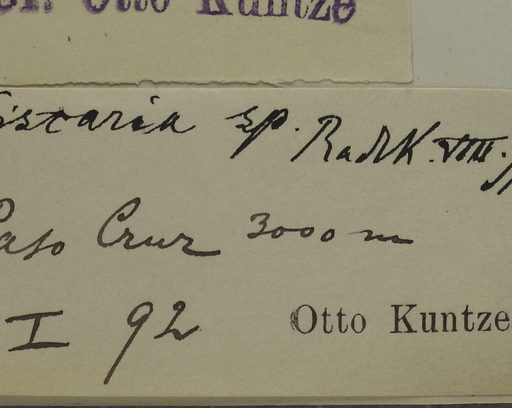 Otto Kuntze
istaria sp. Radlk. VIII.
Paso Cruz 3000 m
I 92
Otto Kuntze